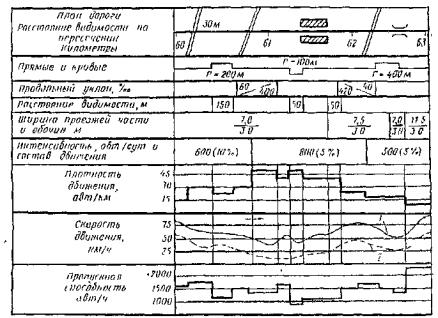 План дороги
Расстояние видимости на
пересечении
Километры
30м
60
61
62
63
Прямые и кривые
r = 200м
r = 100м
r = 400м
Продольный уклон, ‰
60
400
40
420
Расстояние видимости, м
150
50
50
Ширина проезжей части
и обочин м
7,0
3,0
7,5
3,0
7,0
3,0
11,5
3,0
Интенсивность, авт/сут и
состав движения
600(10%)
800(5%)
500(5%)
Плотность
движения,
авт/км
45
30
15
Скорость
движения,
км/ч
75
50
25
1
2
Пропускная
способность
авт/ч
2000
1500
1000